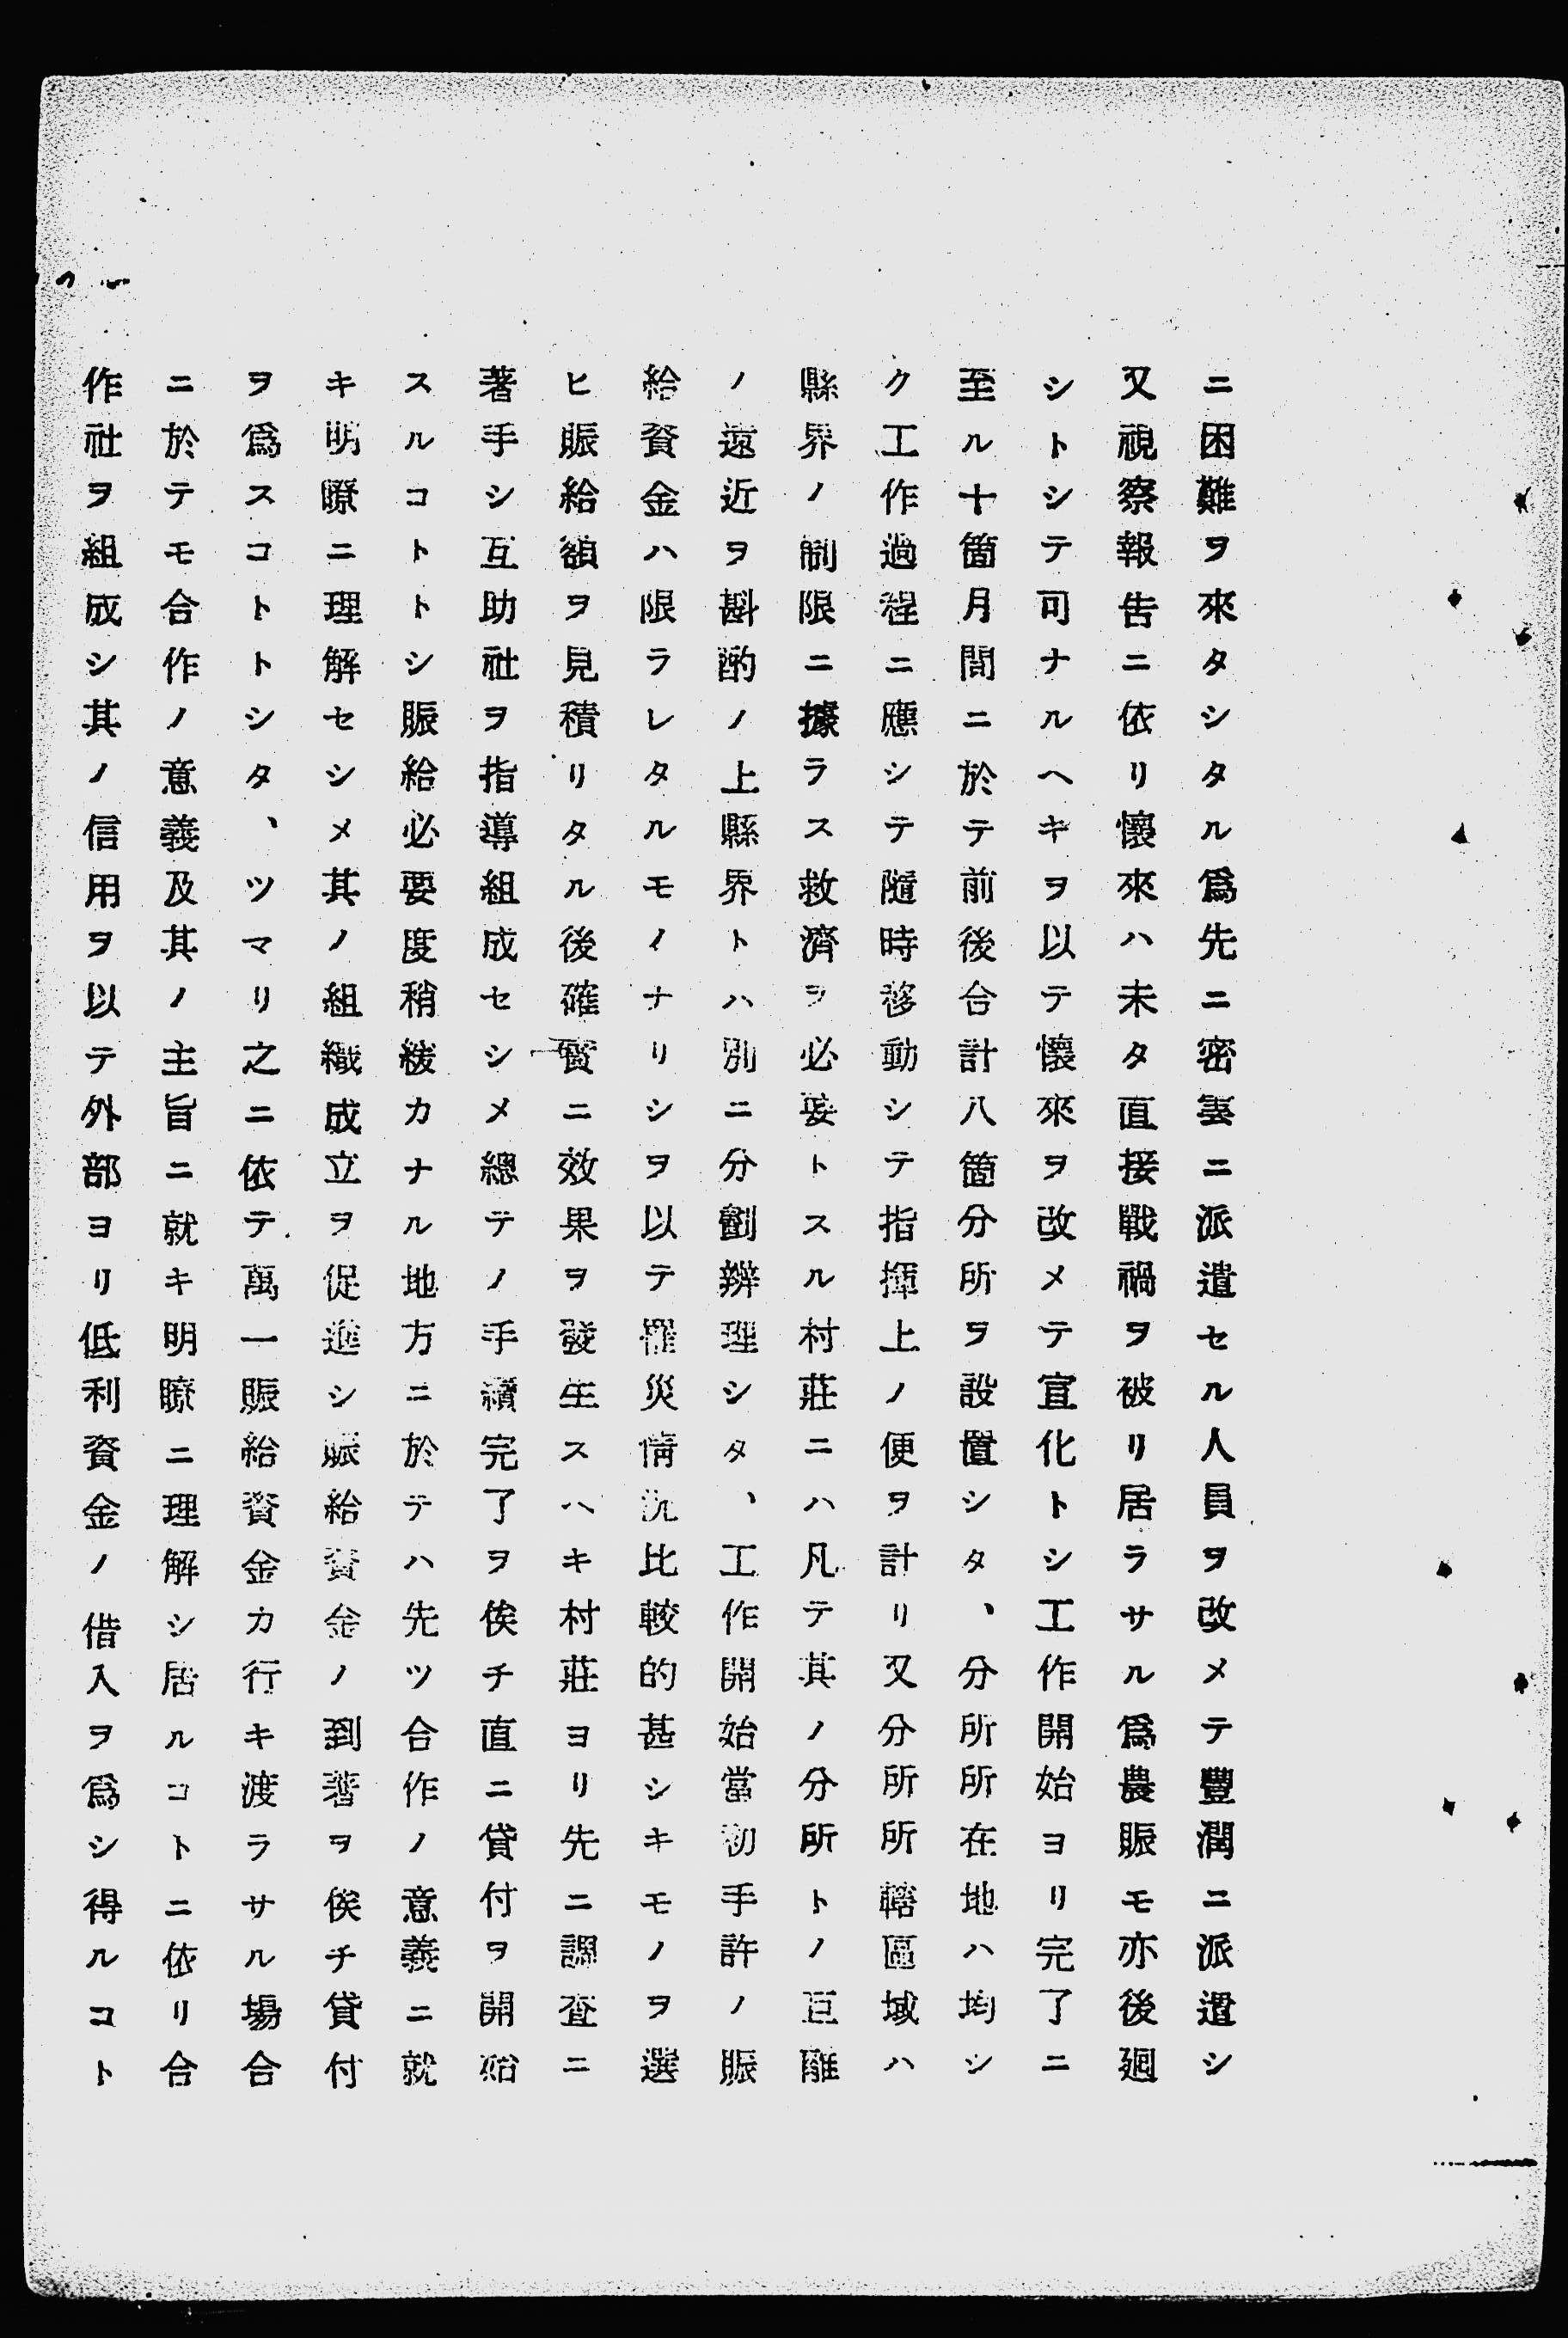 ニ困難ヲ來タシタル爲先ニ密雲ニ派遣セル人員ヲ改メテ豐潤ニ派遣シ
又視察報告ニ依リ懷來ハ未タ直接戰禍ヲ被リ居ラサル爲農賑モ亦後廻
シトシテ可ナルヘキヲ以テ懷來ヲ改メテ宣化トシ工作開始ヨリ完了ニ
至ル十箇月間ニ於テ前後合計八箇分所ヲ設置シタ、分所所在地ハ均シ
ク工作過程ニ應シテ隨時移動シテ指揮上ノ便ヲ計リ又分所所轄區域ハ
縣界ノ制限ニ據ラス救濟ヲ必要トスル村莊ニハ凡テ其ノ分所トノ距離
ノ遠近ヲ斟酌ノ上縣界トハ別ニ分劃辦理シタ、工作開始當初手許ノ賑
給資金ハ限ラレタルモノナリシヲ以テ罹災情況比較的甚シキモノヲ選
ヒ賑給額ヲ見積リタル後確實ニ效果ヲ發生スヘキ村莊ヨリ先ニ調査ニ
著手シ互助社ヲ指導組成セシメ總テノ手續完了ヲ俟チ直ニ貸付ヲ開始
スルコトトシ賑給必要度稍緩カナル地方ニ於テハ先ツ合作ノ意義ニ就
キ明瞭ニ理解セシメ其ノ組織成立ヲ促進シ賑給資金ノ到著ヲ俟チ貸付
ヲ爲スコトトシタ、ツマリ之ニ依テ萬一賑給資金カ行キ渡ラサル場合
ニ於テモ合作ノ意義及其ノ主旨ニ就キ明瞭ニ理解シ居ルコトニ依リ合
作社ヲ組成シ其ノ信用ヲ以テ外部ヨリ低利資金ノ借入ヲ爲シ得ルコト